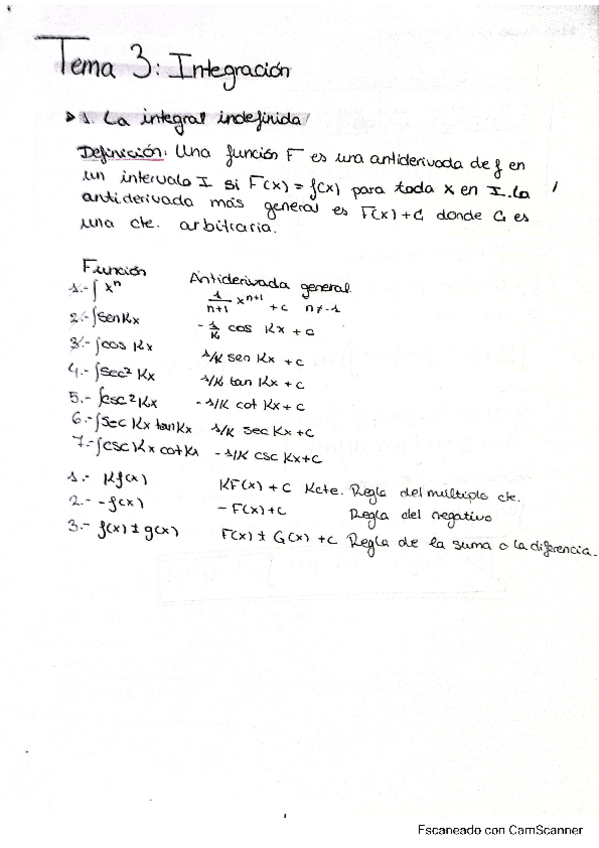 Tema 3: Integración
1. La integral indefinida
Definición: Una función F es una antiderivada de f en
un intervalo I si F(x) = f(x) para toda x en I. La
antiderivada más general es F(x) + C donde C es
una cte. arbitraria.
Función Antiderivada general
1.- ∫ xⁿ 1/n+1 xⁿ⁺¹ + c n ≠ -1
2.- ∫sen Kx - 1/K cos Kx + c
3.- ∫cos Kx 1/K sen Kx + c
4.- ∫sec² Kx 1/K tan Kx + c
5.- ∫csc² Kx - 1/K cot Kx + c
6.- ∫sec Kx tan Kx 1/K sec Kx + c
7.- ∫csc Kx cot Kx - 1/K csc Kx + c
1.- Kf(x) KF(x) + C Kcte. Regla del múltiplo cte.
2.- - f(x) - F(x) + C Regla del negativo
3.- f(x) ± g(x) F(x) ± G(x) + C Regla de la suma o la diferencia.
Escaneado con CamScanner